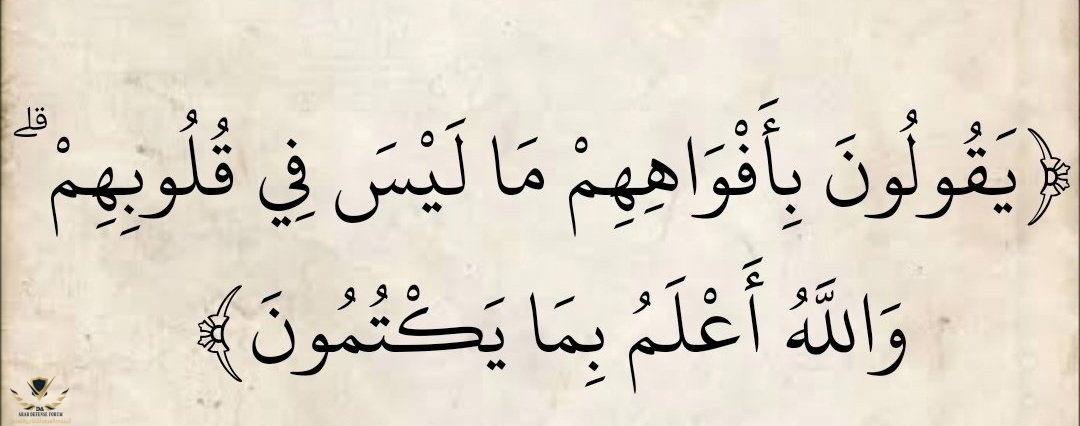 ﴿يَقُولُونَ بِأَفْوَاهِهِمْ مَا لَيْسَ فِي قُلُوبِهِمْ ۗ
وَاللَّهُ أَعْلَمُ بِمَا يَكْتُمُونَ﴾
DA
ARAB DEFENSE FORUM